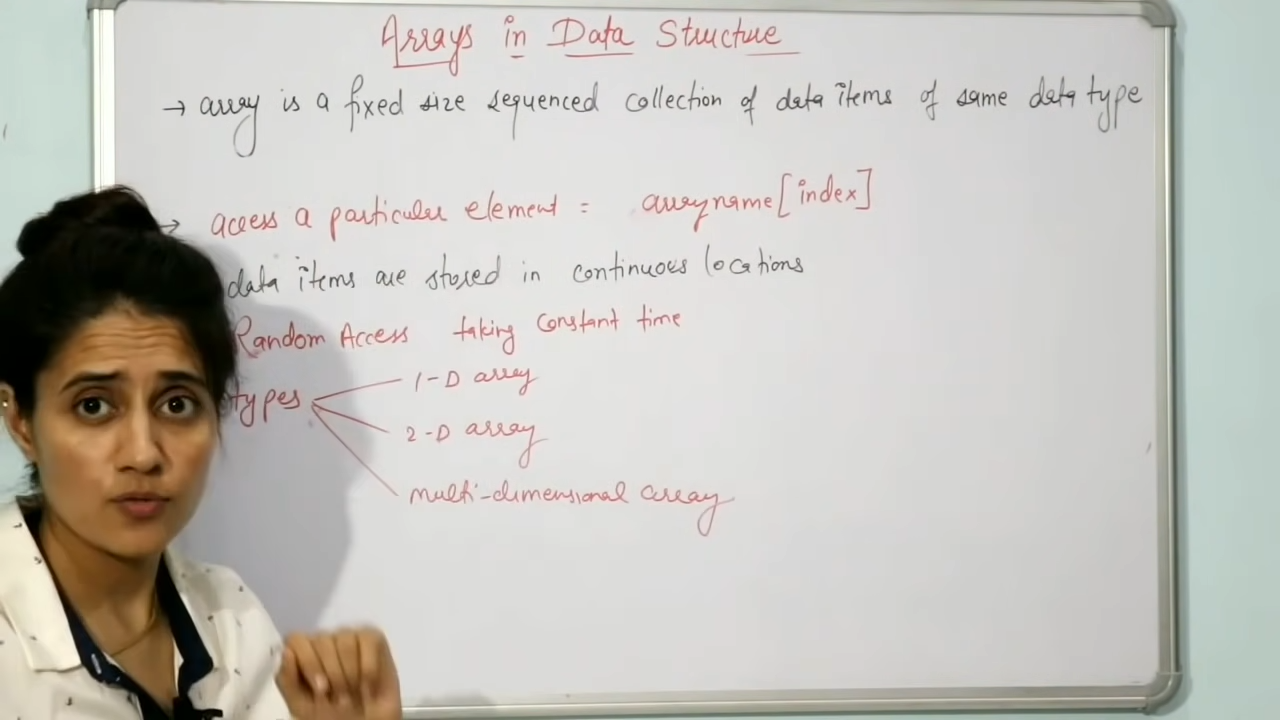 Arrays in Data Structure
→ array is a fixed size sequenced collection of data items of same data type
→ access a particular element = arrayname[index]
data items are stored in continuous locations
Random Access taking constant time
types
1-D array
2-D array
multi-dimensional array